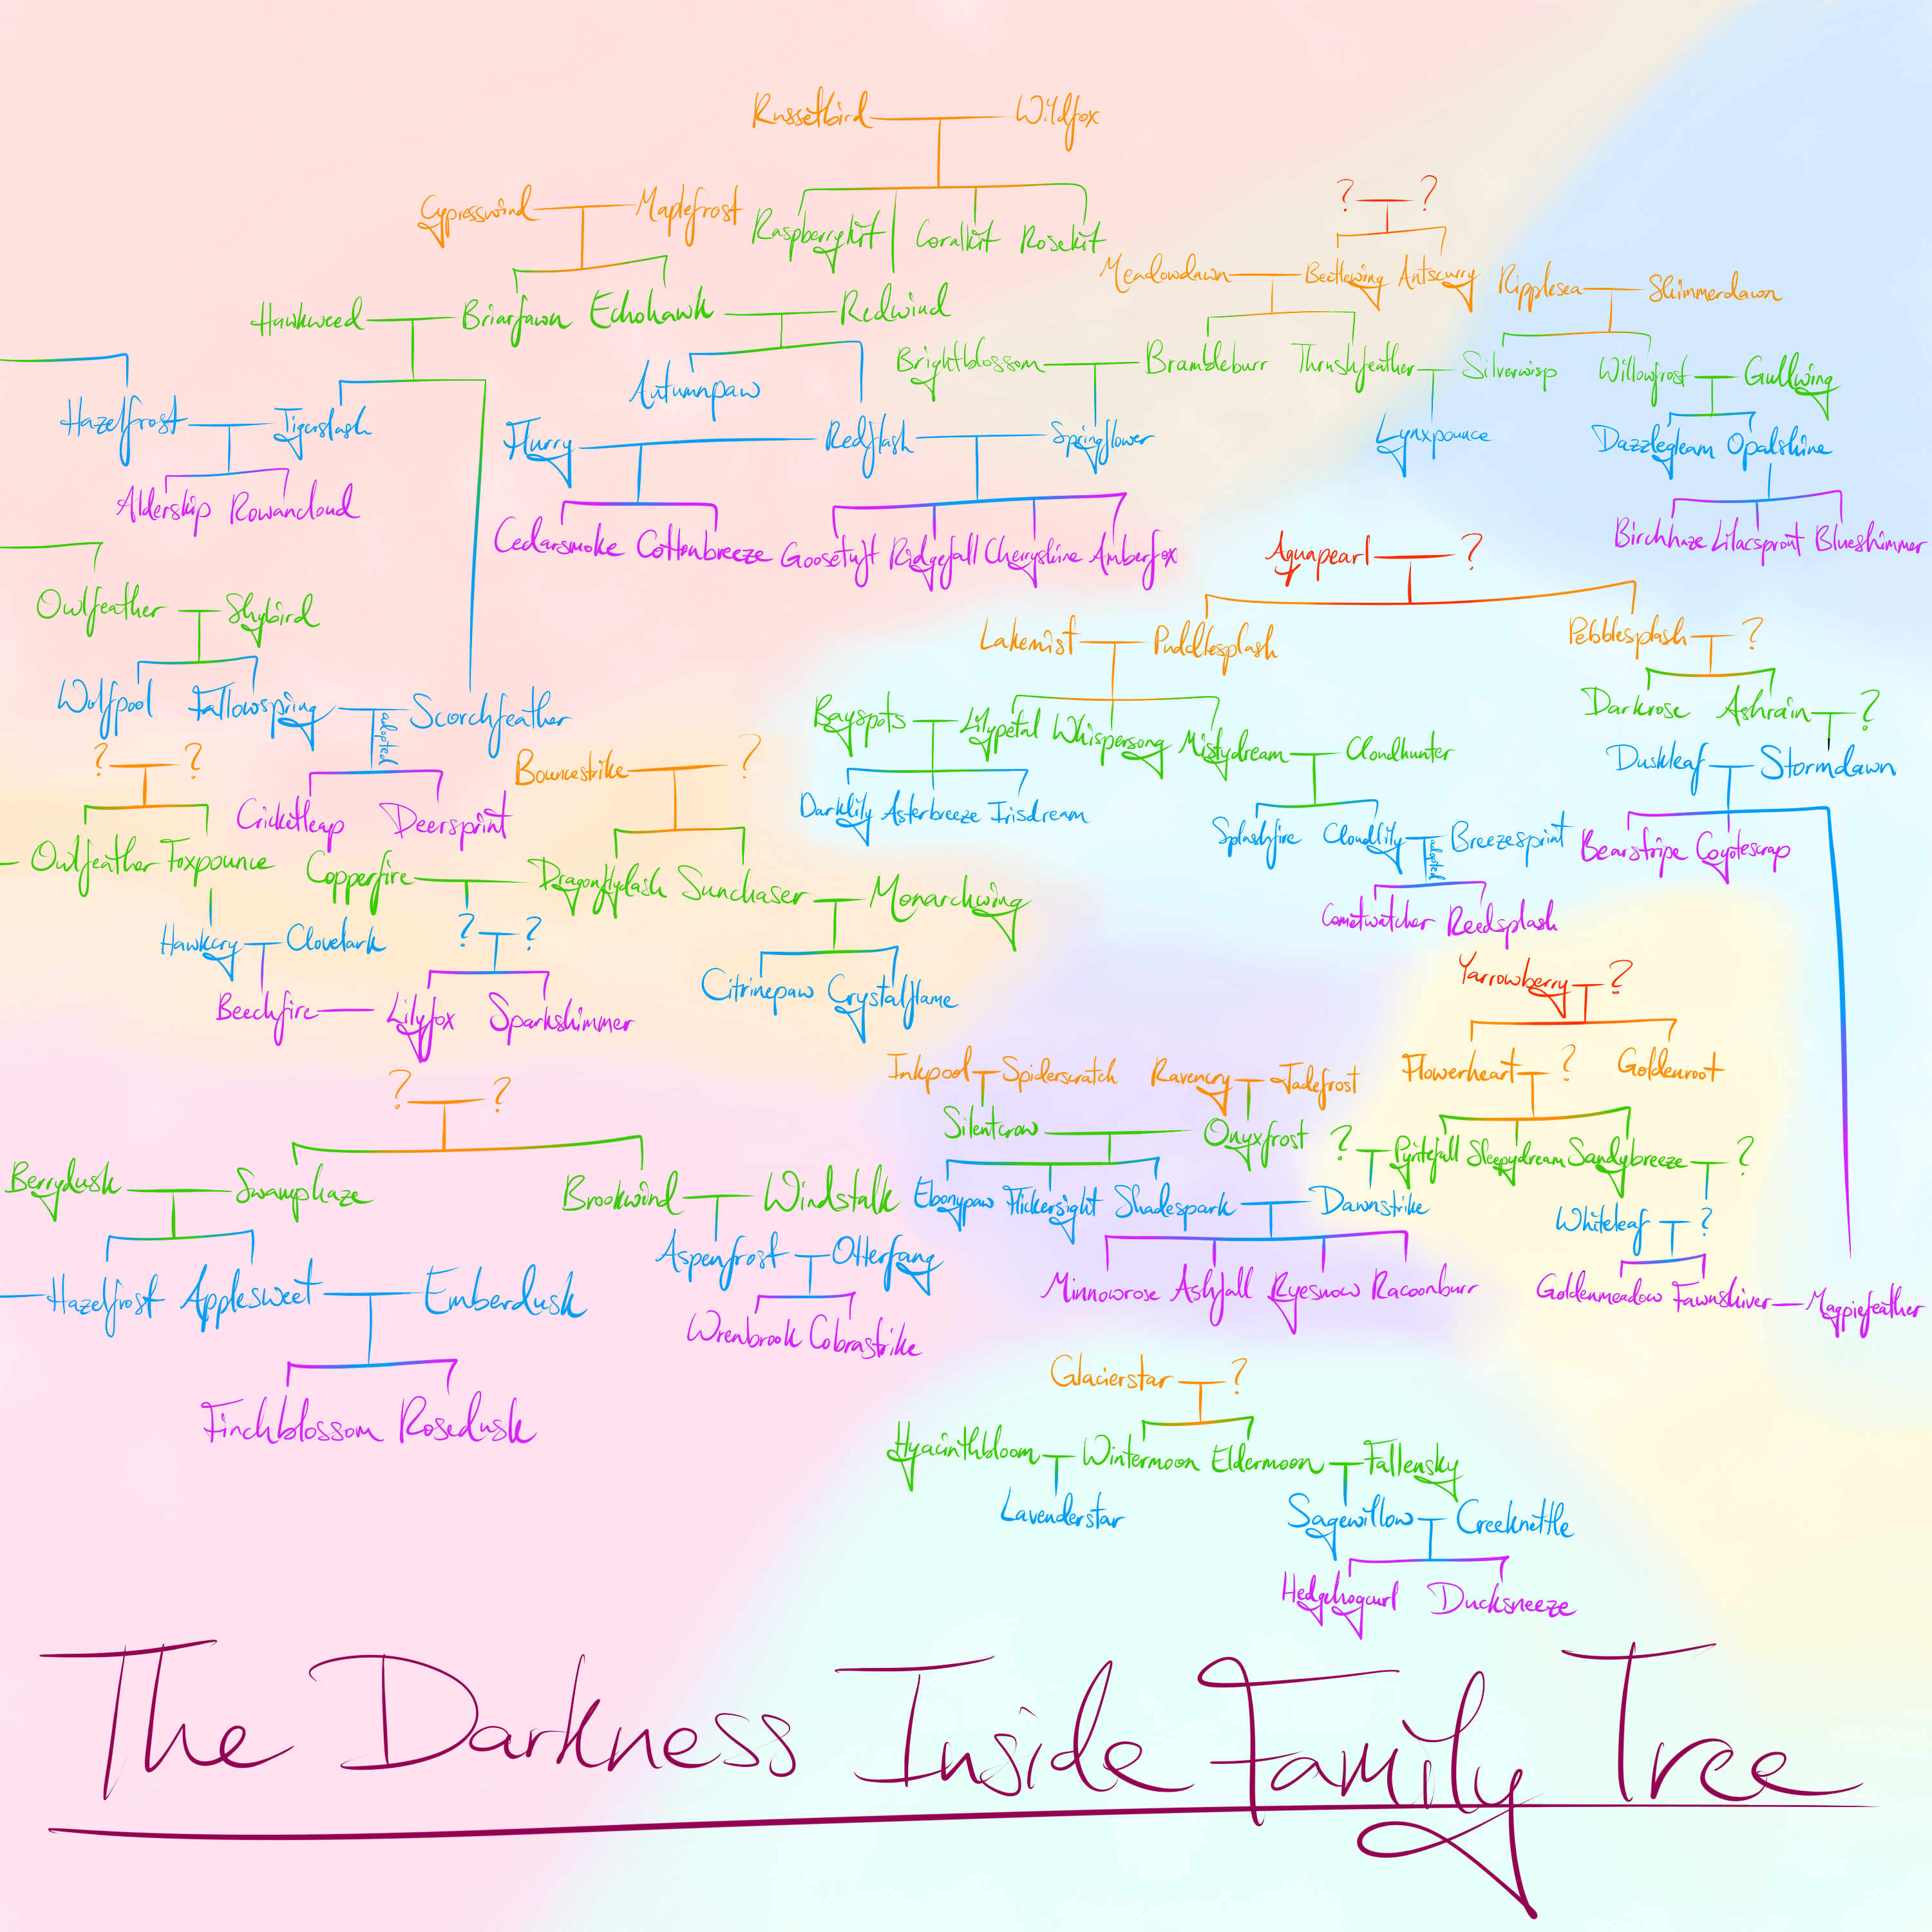 Russetbird Wildfox
Cypresswind Maplefrost
Raspberrykit Coralkit Rosekit
? ?
Meadowdawn Beetlewing Antscurry Ripplesea Shimmerdawn
Hawkweed Briarfawn Echohawk Redwind
Autumnpaw
Brightblossom Brambleburr Thrushfeather Silverwisp Willowfrost Gullwing
Hazelfrost Tigerslash
Flurry Redflash Springflower Lynxpounce Dazzlegleam Opalshine
Alderskip Rowancloud
Cedarsmoke Cottonbreeze Goosetuft Ridgefall Cherryshine Amberfox
Birchhaze Lilacsprout Blueshimmer
Aquapearl ?
Owlfeather Skybird
Lakemist Puddlesplash Pebblesplash ?
Wolfpool Fallowspring Scorchfeather
adopted
Darkrose Ashrain ?
Bayspots Lilypetal Whispersong Mistydream Cloudhunter
Duskleaf Stormdawn
? ?
Bouncestrike ?
Cricketleap Deersprint
Darklily Asterbreeze Irisdream
Splashfire Cloudlily Breezesprint
adopted
Bearstripe Coyotescrap
Owlfeather Foxpounce Copperfire Dragonflydash Sunchaser Monarchwing
Cometwatcher Reedsplash
Hawkcry Clovelark ? ?
Citrinepaw Crystalflame
Beechfire Lilyfox Sparkshimmer
Yarrowberry ?
Inkpool Spiderscratch Ravencry Jadefrost
Flowerheart ? Goldenroot
? ?
Silentcrow Onyxfrost
? Pyritefall Sleepydream Sandybreeze ?
Berrydusk Swamphaze Brookwind Windstalk
Ebonypaw Flickersight Shadespark Dawnstrike
Whiteleaf ?
Aspenfrost Otterfang
Hazelfrost Applesweet Emberdusk
Minnowrose Ashfall Ryesnow Racoonburr
Goldenmeadow Fawnshiver Magpiefeather
Wrenbrook Cobrastrike
Finchblossom Rosedusk
Glacierstar ?
Hyacinthbloom Wintermoon Eldermoon Fallensky
Lavenderstar
Sagewillow Creeknettle
Hedgehogcurl Ducksneeze
The Darkness Inside Family Tree